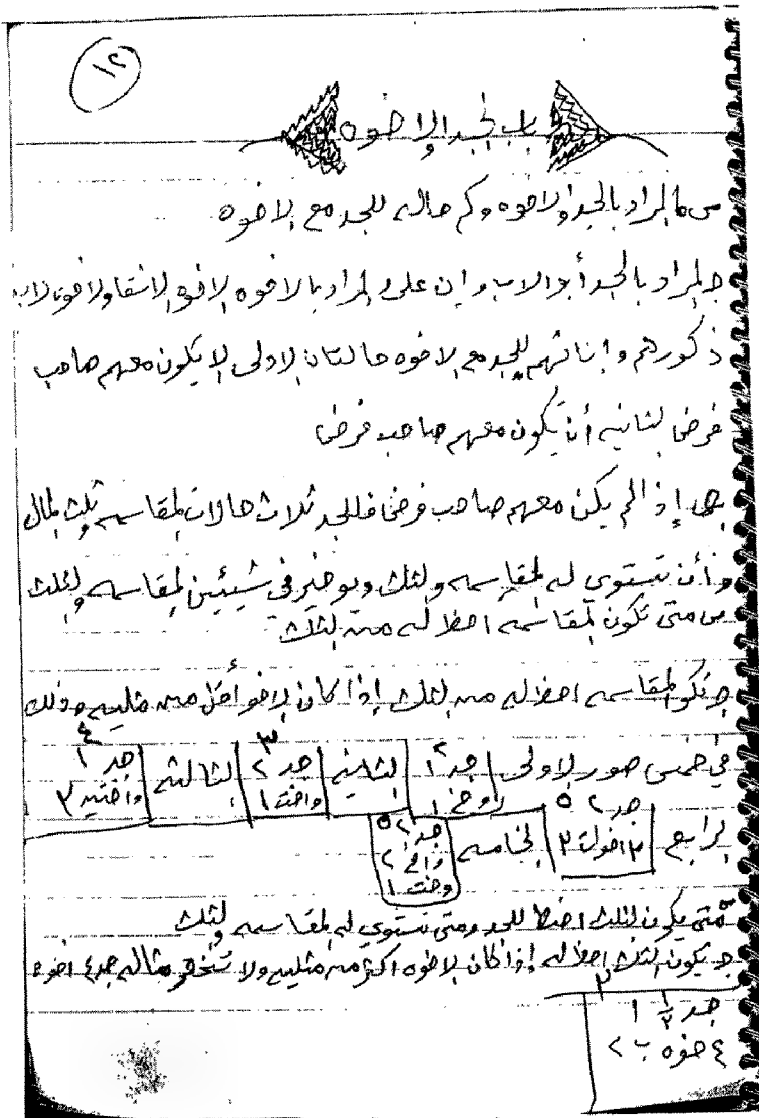 ١٢
باب الجد والاخوه
س ما المراد بالجد والاخوه وكم حاله للجد مع الاخوه
ج المراد بالجد أبو الاب وإن على والمراد بالاخوه الاخوه الاشقا والاخوه لاب
ذكورهم وإناثهم للجد مع الاخوه حالتان الاولى الا يكون معهم صاحب
فرض الثانيه أن يكون معهم صاحب فرض
إذا لم يكن معهم صاحب فرض فللجد ثلاث حالات المقاسمه وثلث المال
وأن تستوي له المقاسمه والثلث ويوخير في شيئين المقاسمه والثلث
س متى تكون المقاسمه احظ له من الثلث
ج تكو المقاسمه احظ له من الثلث إذا كان الاخو أقل من مثليه وذلك
في خمس صور الاولى
٢
جد ١
وأخ ١
الثانية
٣
جد ٢
واخت ١
الثالثه
٤
جد ٢
واختين ٢
الرابع
٥
جد ٢
٣ اخوات ٣
الخامسه
٥
جد ٢
واخ ٢
وخت ١
متى يكون الثلث احظ للجد ومتى تستوي له المقاسمه والثلث
ج يكون الثلث احظ له إذا كان الاخوه اكثر من مثليه ولا تنحصر مثاله جد ٤ اخوه
٣
جد ١/٣ ١
٤ خوه ب ٢